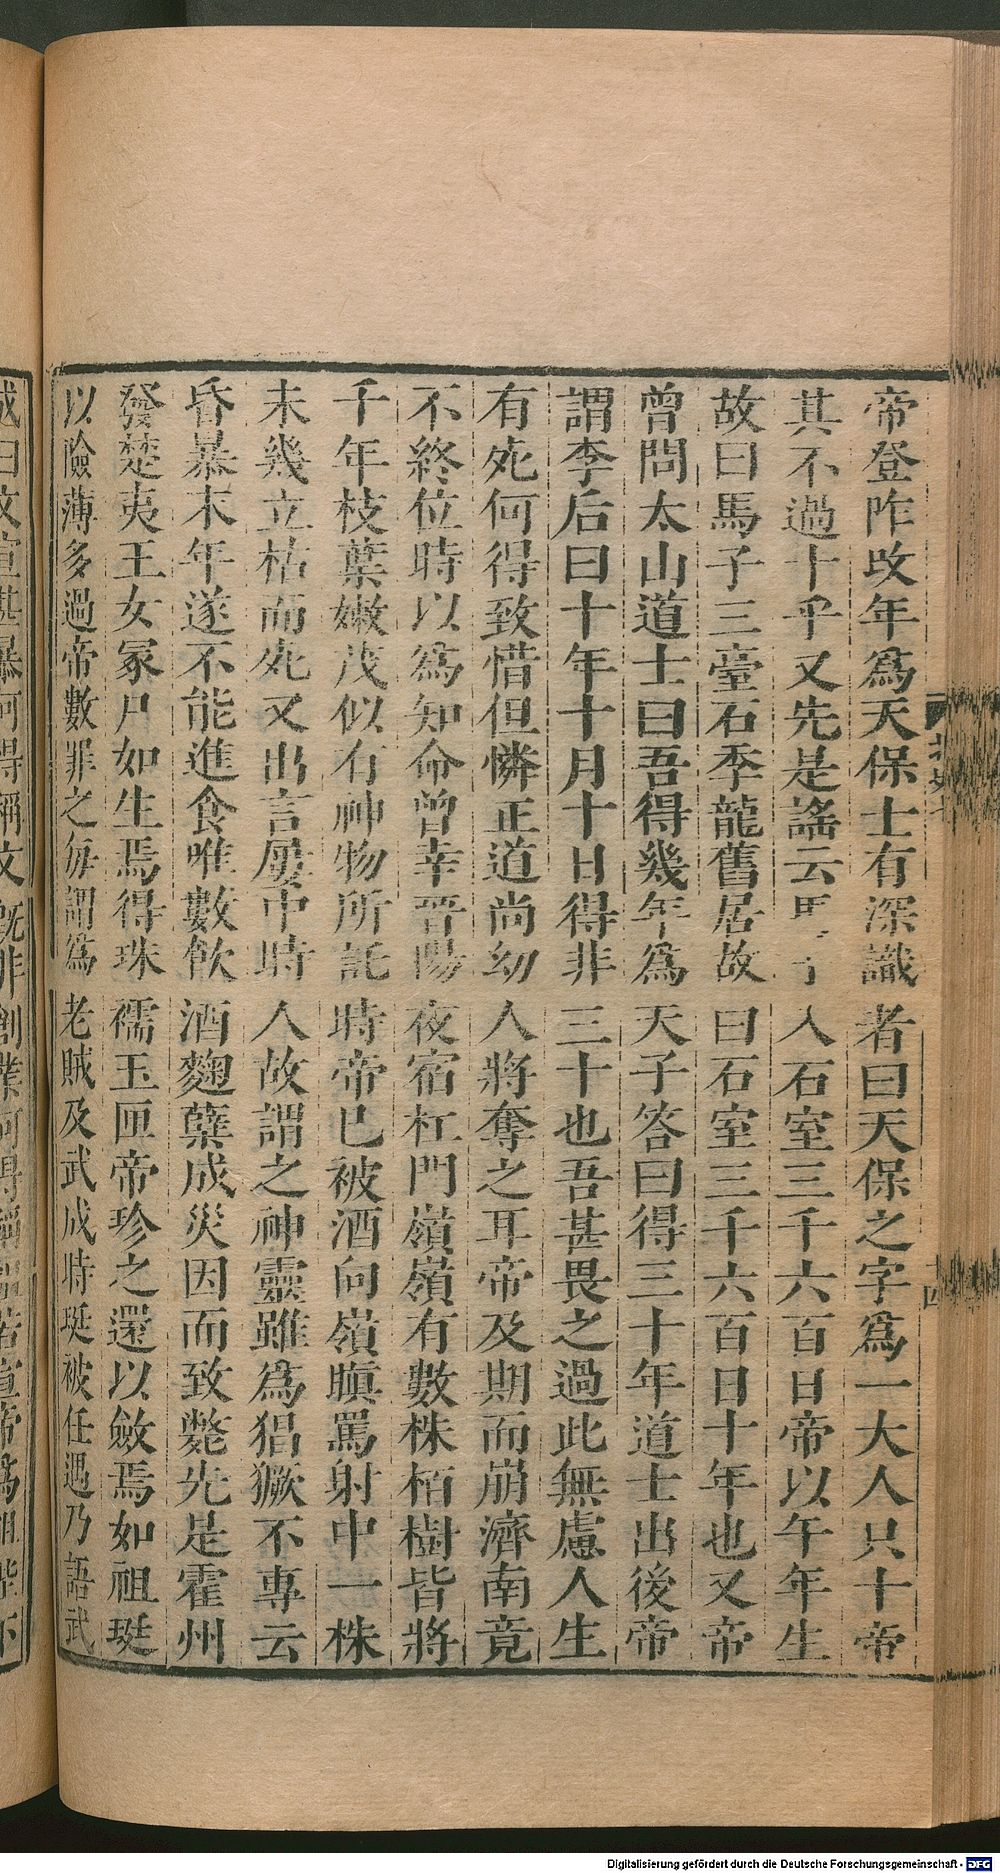 帝登阼改年爲天保士有深識者曰天保之字爲一大人只十帝
其不過十乎又先是謠云馬子入石室三千六百日帝以午年生
故曰馬子三臺石季龍舊居故曰石室三千六百日十年也又帝
曾問太山道士曰吾得幾年爲天子答曰得三十年道士出後帝
謂李后曰十年十月十日得非三十也吾甚畏之過此無慮人生
有死何得致惜但憐正道尚幼人將奪之耳帝及期而崩濟南竟
不終位時以爲知命曾幸晉陽夜宿杠門嶺嶺有數株栢樹皆將
千年枝葉嫩茂似有神物所託時帝已被酒向嶺瞋罵射中一株
未幾立枯而死又出言屢中時人故謂之神靈雖爲猖獗不專云
昏暴末年遂不能進食唯數飲酒麴糱成災因而致斃先是霍州
發楚夷王女冢尸如生焉得珠襦玉匣帝珍之還以斂焉如祖珽
以險薄多過帝數罪之每謂爲老賊及武成時珽被任遇乃語武
北史七
十四
成曰文宣甚暴何得稱文既非創業何得稱祖若宣帝爲祖陛下
Digitalisierung gefördert durch die Deutsche Forschungsgemeinschaft - DFG